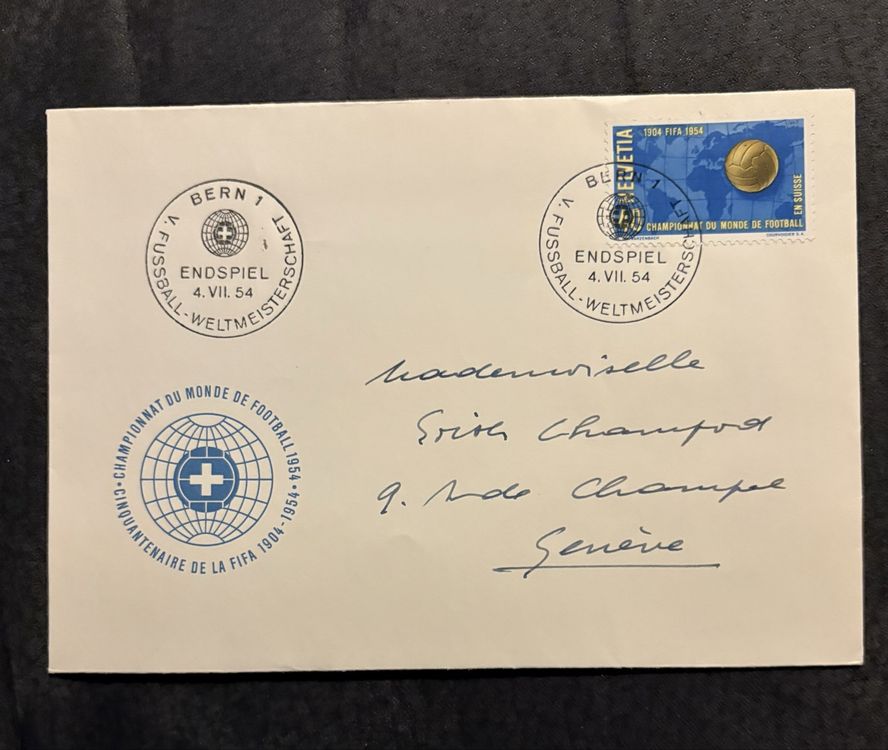 BERN 1
ENDSPIEL
4.VII.54
V. FUSSBALL-WELTMEISTERSCHAFT
1904 FIFA 1954
HELVETIA
EN SUISSE
CHAMPIONNAT DU MONDE DE FOOTBALL
COURVOISIER S.A.
BERN 1
ENDSPIEL
4.VII.54
V. FUSSBALL-WELTMEISTERSCHAFT
CHAMPIONNAT DU MONDE DE FOOTBALL 1954
CINQUANTENAIRE DE LA FIFA 1904-1954
Mademoiselle
9. Champel
Genève